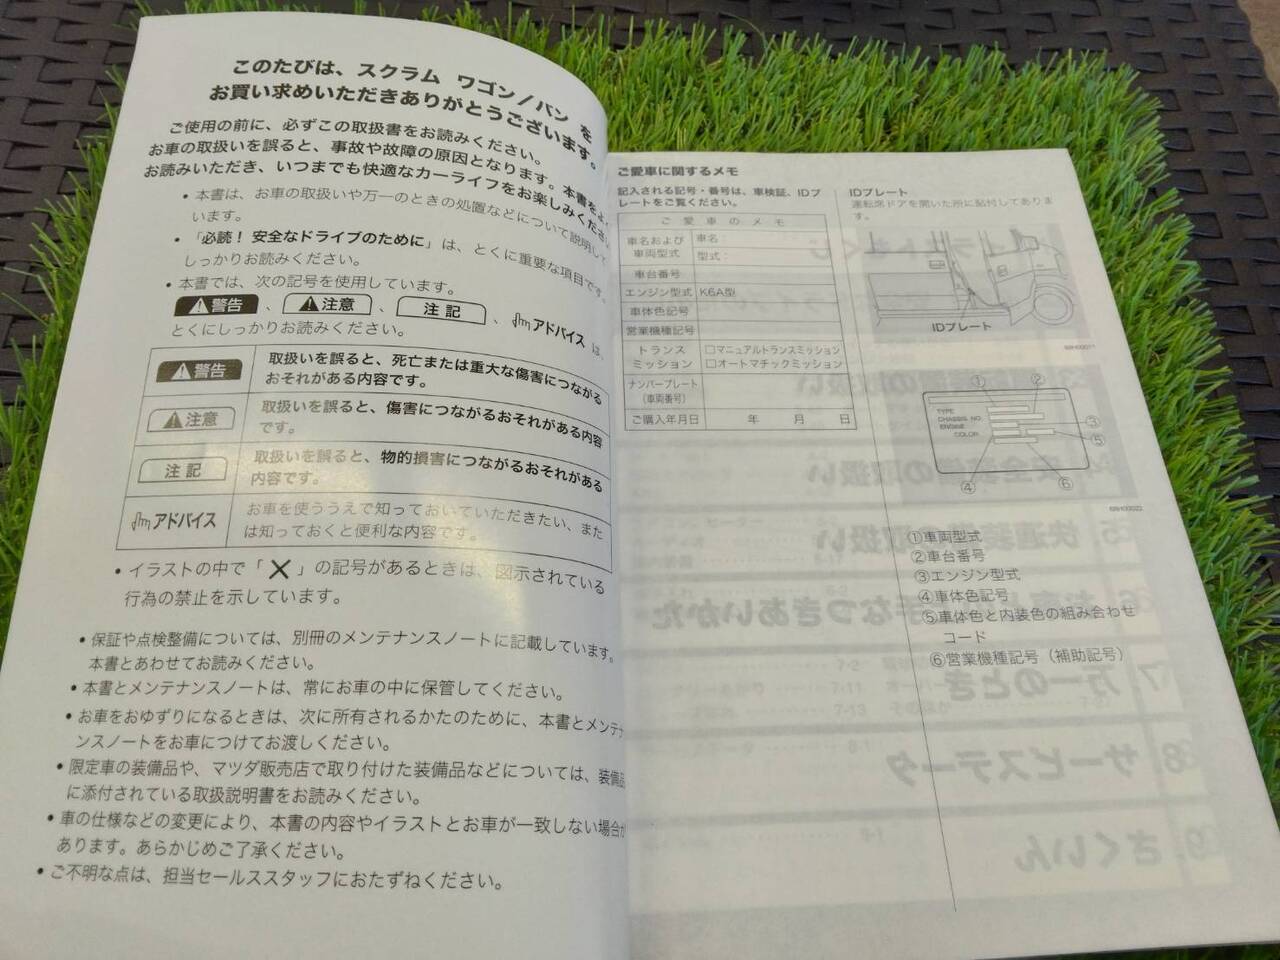 このたびは、スクラム ワゴン／バン を
お買い求めいただきありがとうございます。
ご使用の前に、必ずこの取扱書をお読みください。
お車の取扱いを誤ると、事故や故障の原因となります。本書をよ
お読みいただき、いつまでも快適なカーライフをお楽しみくださ
• 本書は、お車の取扱いや万一のときの処置などについて説明して
います。
• 「必読！ 安全なドライブのために」は、とくに重要な項目です。
しっかりお読みください。
• 本書では、次の記号を使用しています。
警告 、 注意 、 注記 、 アドバイス は、
とくにしっかりお読みください。
警告
取扱いを誤ると、死亡または重大な傷害につながる
おそれがある内容です。
注意
取扱いを誤ると、傷害につながるおそれがある内容
です。
注記
取扱いを誤ると、物的損害につながるおそれがある
内容です。
アドバイス
お車を使ううえで知っておいていただきたい、また
は知っておくと便利な内容です。
• イラストの中で「 ✕ 」の記号があるときは、図示されている
行為の禁止を示しています。
• 保証や点検整備については、別冊のメンテナンスノートに記載しています。
本書とあわせてお読みください。
• 本書とメンテナンスノートは、常にお車の中に保管してください。
• お車をおゆずりになるときは、次に所有されるかたのために、本書とメンテナ
ンスノートをお車につけてお渡しください。
• 限定車の装備品や、マツダ販売店で取り付けた装備品などについては、装備品
に添付されている取扱説明書をお読みください。
• 車の仕様などの変更により、本書の内容やイラストとお車が一致しない場合が
あります。あらかじめご了承ください。
• ご不明な点は、担当セールススタッフにおたずねください。
ご愛車に関するメモ
記入される記号・番号は、車検証、IDプ
レートをご覧ください。
ご愛車のメモ
車名および
車両型式
車名：
型式：
車台番号
エンジン型式 K6A型
車体色記号
営業機種記号
トランス
ミッション
□マニュアルトランスミッション
□オートマチックミッション
ナンバープレート
（車両番号）
ご購入年月日 年 月 日
IDプレート
運転席ドアを開いた所に貼付してありま
す。
IDプレート
① ②
TYPE
CHASSIS NO.
ENGINE
COLOR
③
⑤
④ ⑥
①車両型式
②車台番号
③エンジン型式
④車体色記号
⑤車体色と内装色の組み合わせ
コード
⑥営業機種記号（補助記号）